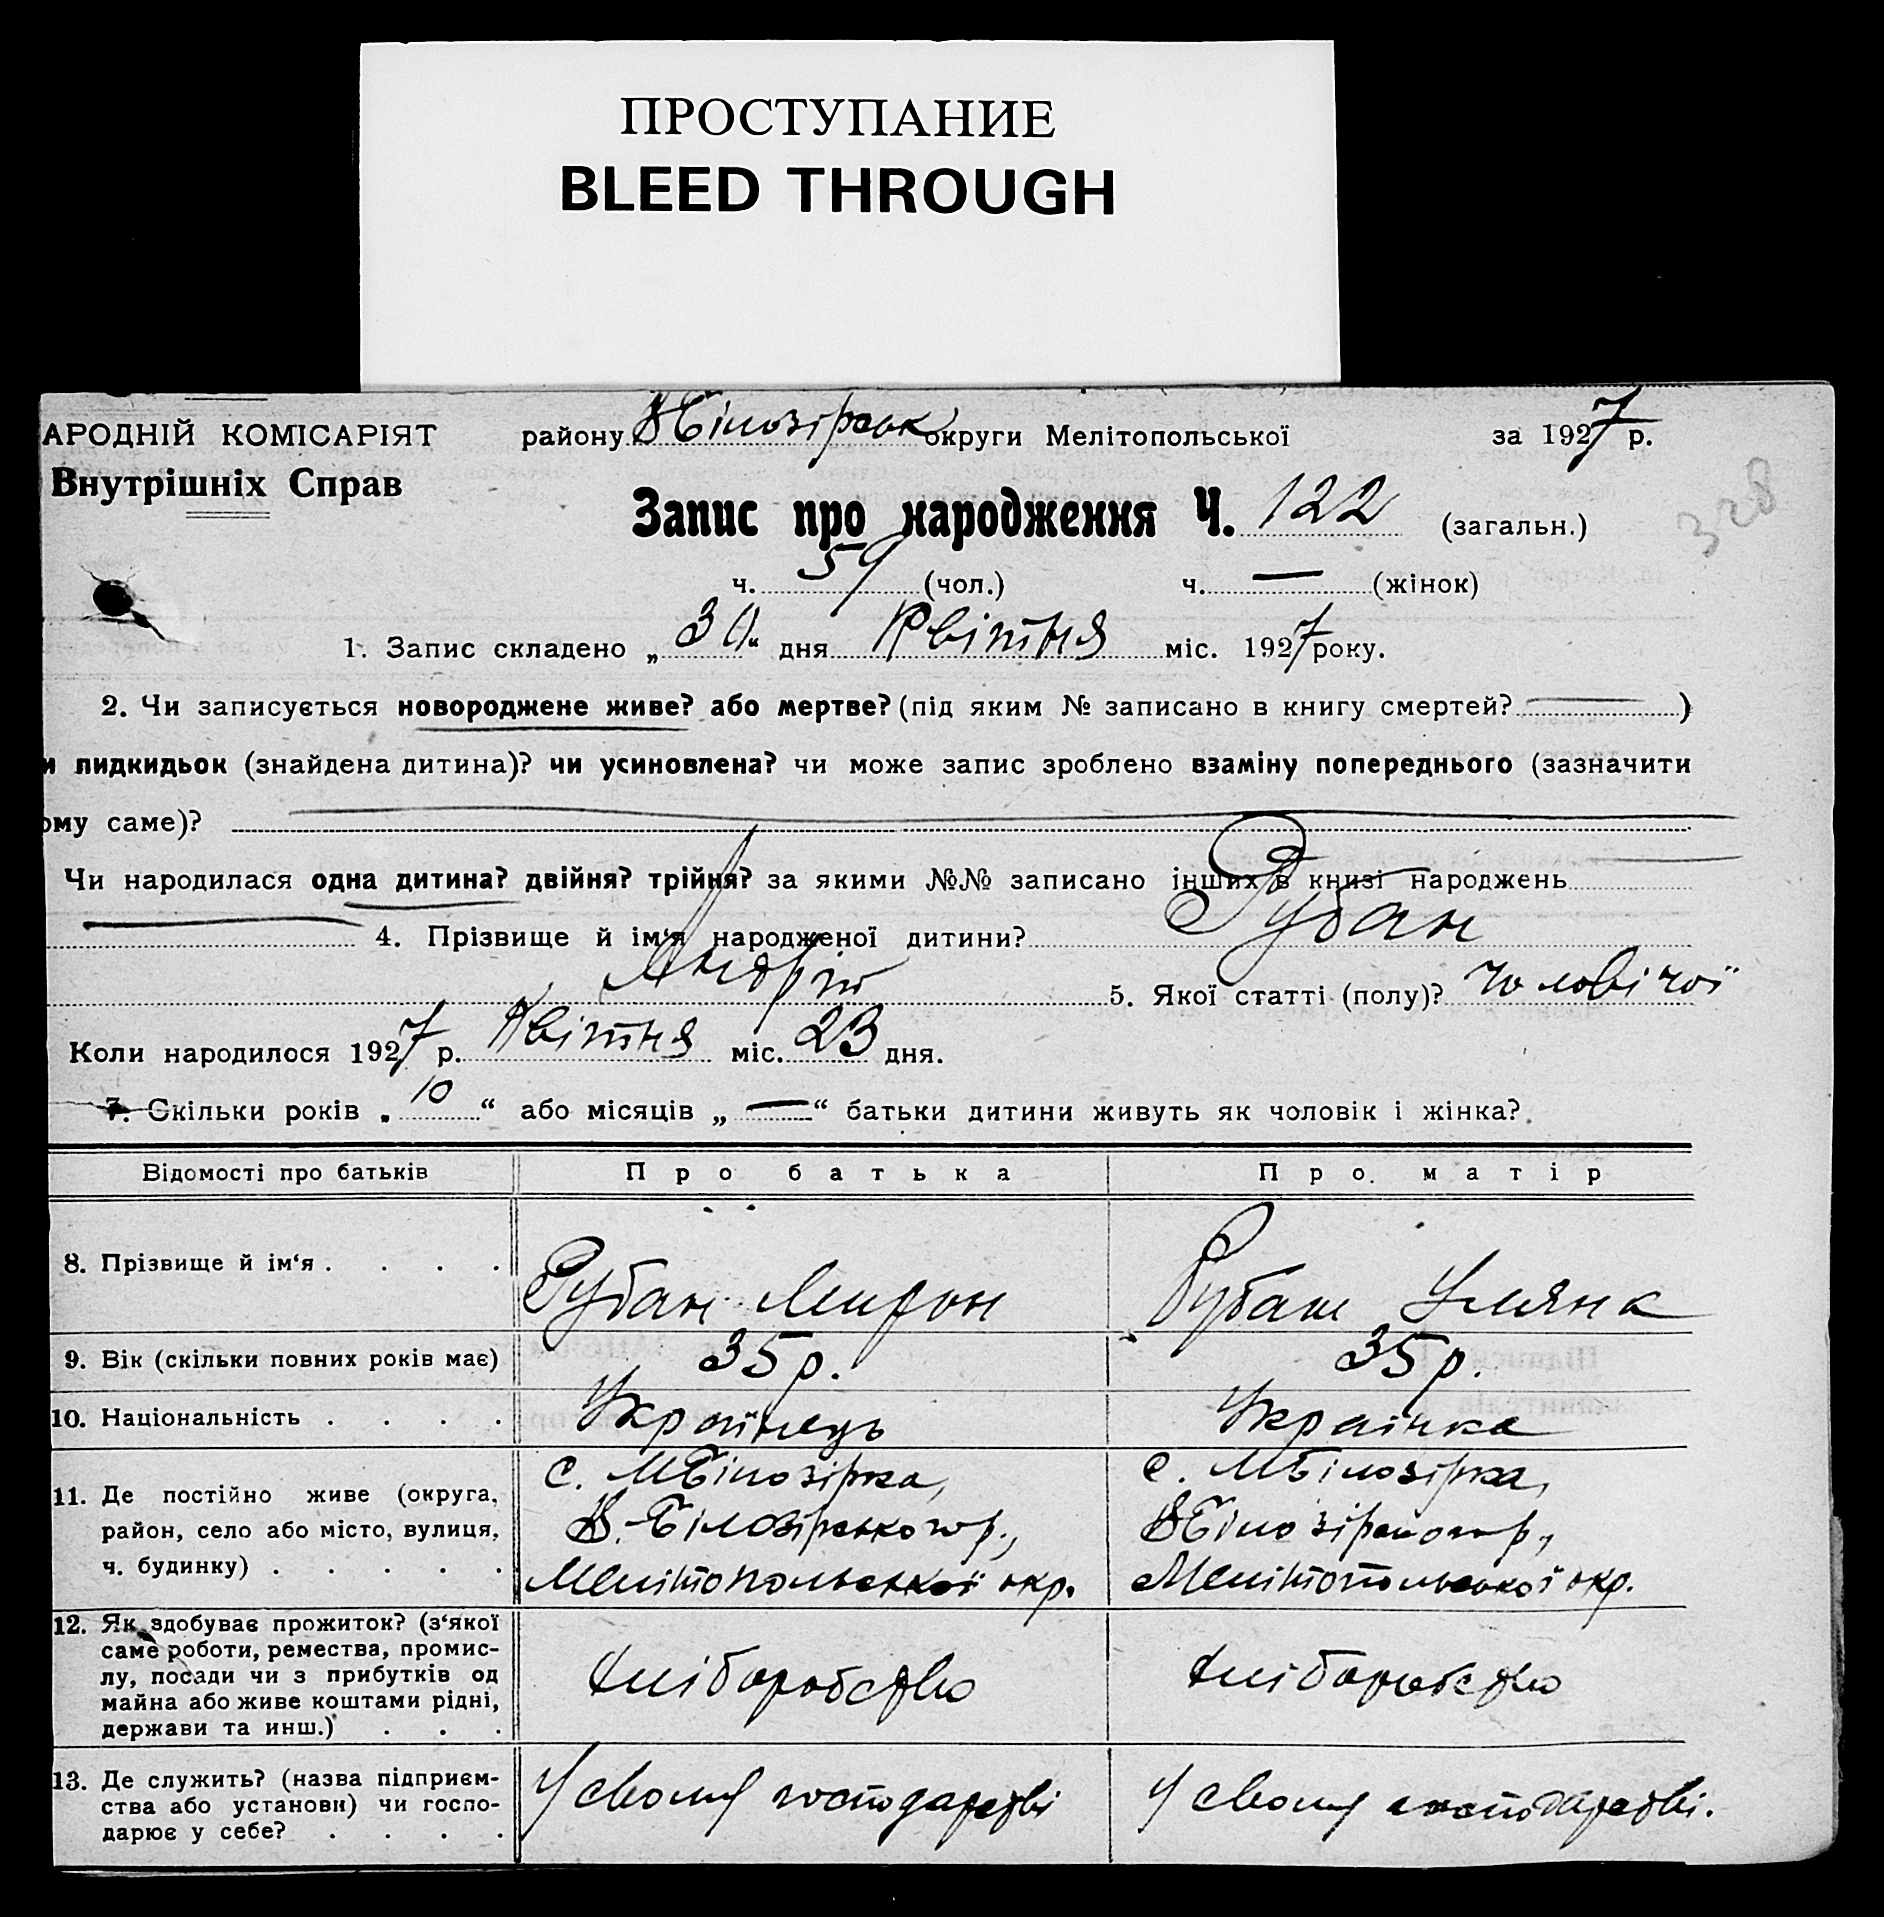 ПРОСТУПАНИЕ
BLEED THROUGH
АРОДНІЙ КОМІСАРІЯТ району ВБілозірськ округи Мелітопольської за 1927 р.
Внутрішніх Справ
Запис про народження Ч. 122 (загальн.)
328
ч. 59 (чол.) ч. — (жінок)
1. Запис складено „30“ дня Квітня міс. 1927 року.
2. Чи записується новороджене живе? або мертве? (під яким № записано в книгу смертей? — )
и пидкидьок (знайдена дитина)? чи усиновлена? чи може запис зроблено взаміну попереднього (зазначити
ому саме)?
Чи народилася одна дитина? двійня? трійня? за якими №№ записано інших в книзі народжень
4. Прізвище й ім‘я народженої дитини? Рубан
Андрій 5. Якої статті (полу)? Чоловічої
Коли народилося 1927 р. Квітня міс. 23 дня.
7. Скільки років „10“ або місяців „—“ батьки дитини живуть як чоловік і жінка?
Відомості про батьків Про батька Про матір
8. Прізвище й ім‘я . . . . Рубан Мирон Рубан Улияна
9. Вік (скільки повних років має) 35 р. 35 р.
10. Національність . . . . Українець Українка
11. Де постійно живе (округа, район, село або місто, вулиця, ч. будинку) . . . . .
с. МБілозірка,
В.-Білозірського р.,
Мелітопольської окр.
с. МБілозірка,
ВБілозірського р.,
Мелітопольської окр.
12. Як здобуває прожиток? (з‘якої
саме роботи, ремества, промис-
лу, посади чи з прибутків од
майна або живе коштами рідні,
держави та инш.) . . .
хліборобство хліборобство
13. Де служить? (назва підприєм-
ства або установи) чи госпо-
дарює у себе? . . . .
У свому господарстві У свому господарстві.